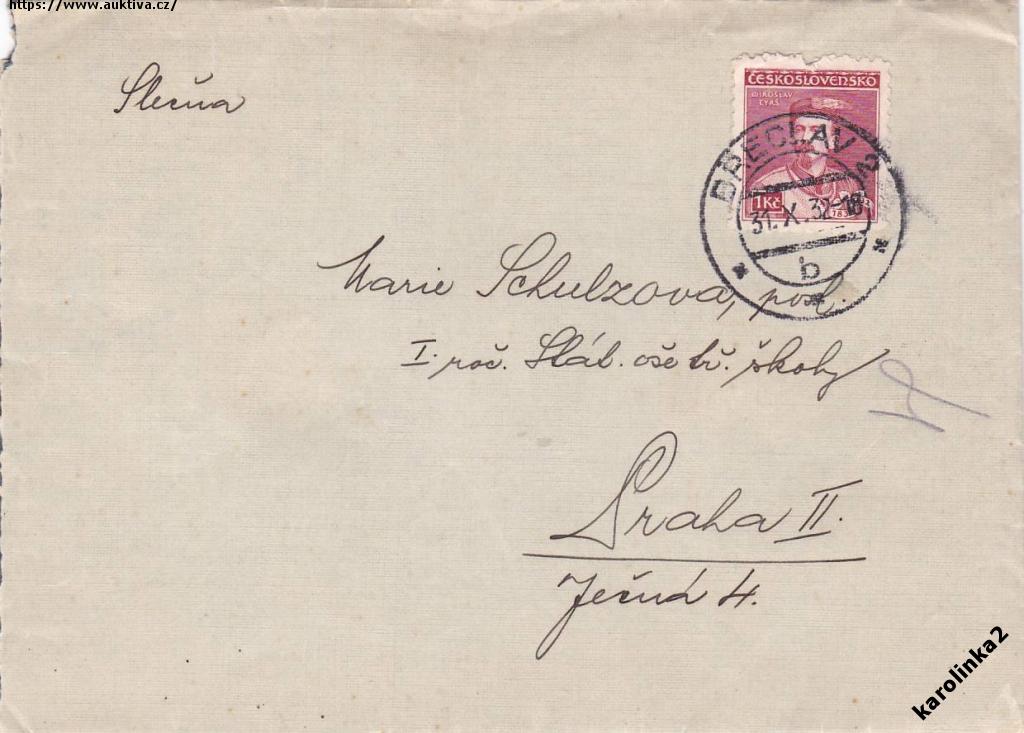 https://www.auktiva.cz/
Slečna
ČESKOSLOVENSKO
MIROSLAV
TYRŠ
1Kč
BŘECLAV 2
31.X.32-18
b
Marie Schulzova, posl.
I. roč. Stát. ošetř. školy
Praha II.
Ječná 4.
karolinka2